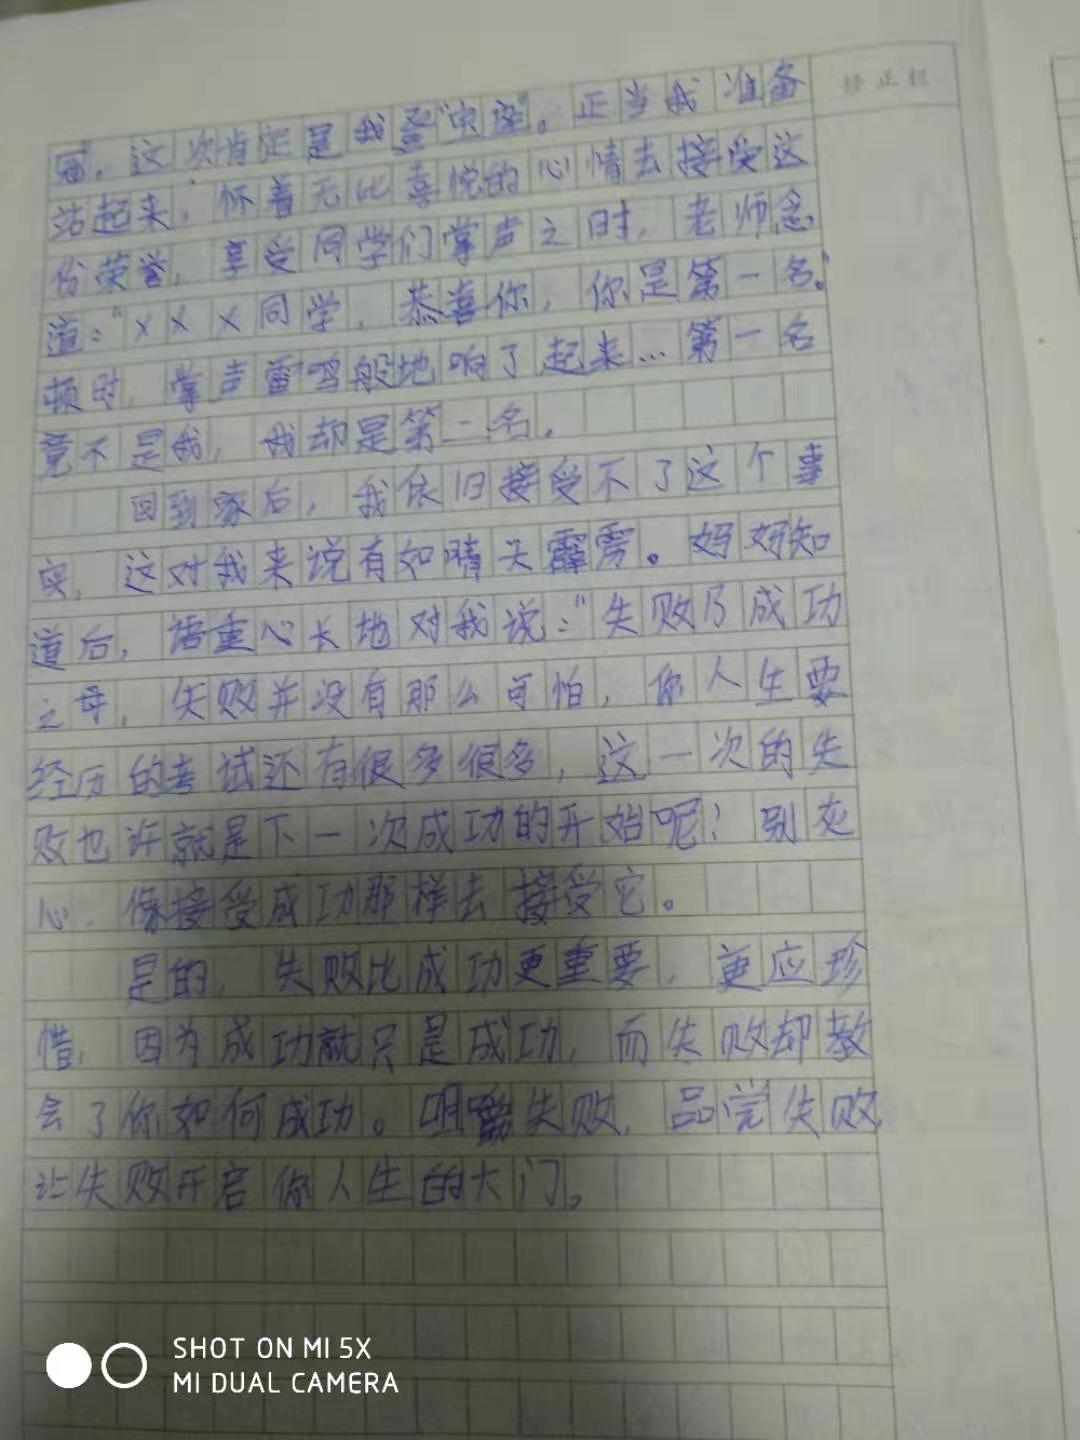 修正栏
冠，这次肯定是我登"宝座"。正当我准备
站起来，怀着无比喜悦的心情去接受这
份荣誉，享受同学们掌声之时，老师念
道："×××同学，恭喜你，你是第一名。"
顿时，掌声雷鸣般地响了起来…第一名
竟不是我，我却是第二名。
回到家后，我依旧接受不了这个事
实，这对我来说有如晴天霹雳。妈妈知
道后，语重心长地对我说："失败乃成功
之母，失败并没有那么可怕，你人生要
经历的考试还有很多很多，这一次的失
败也许就是下一次成功的开始呢！别灰
心，像接受成功那样去接受它。
是的，失败比成功更重要，更应珍
惜，因为成功就只是成功，而失败却教
会了你如何成功。咀嚼失败，品尝失败，
让失败开启你人生的大门。
SHOT ON MI 5X
MI DUAL CAMERA